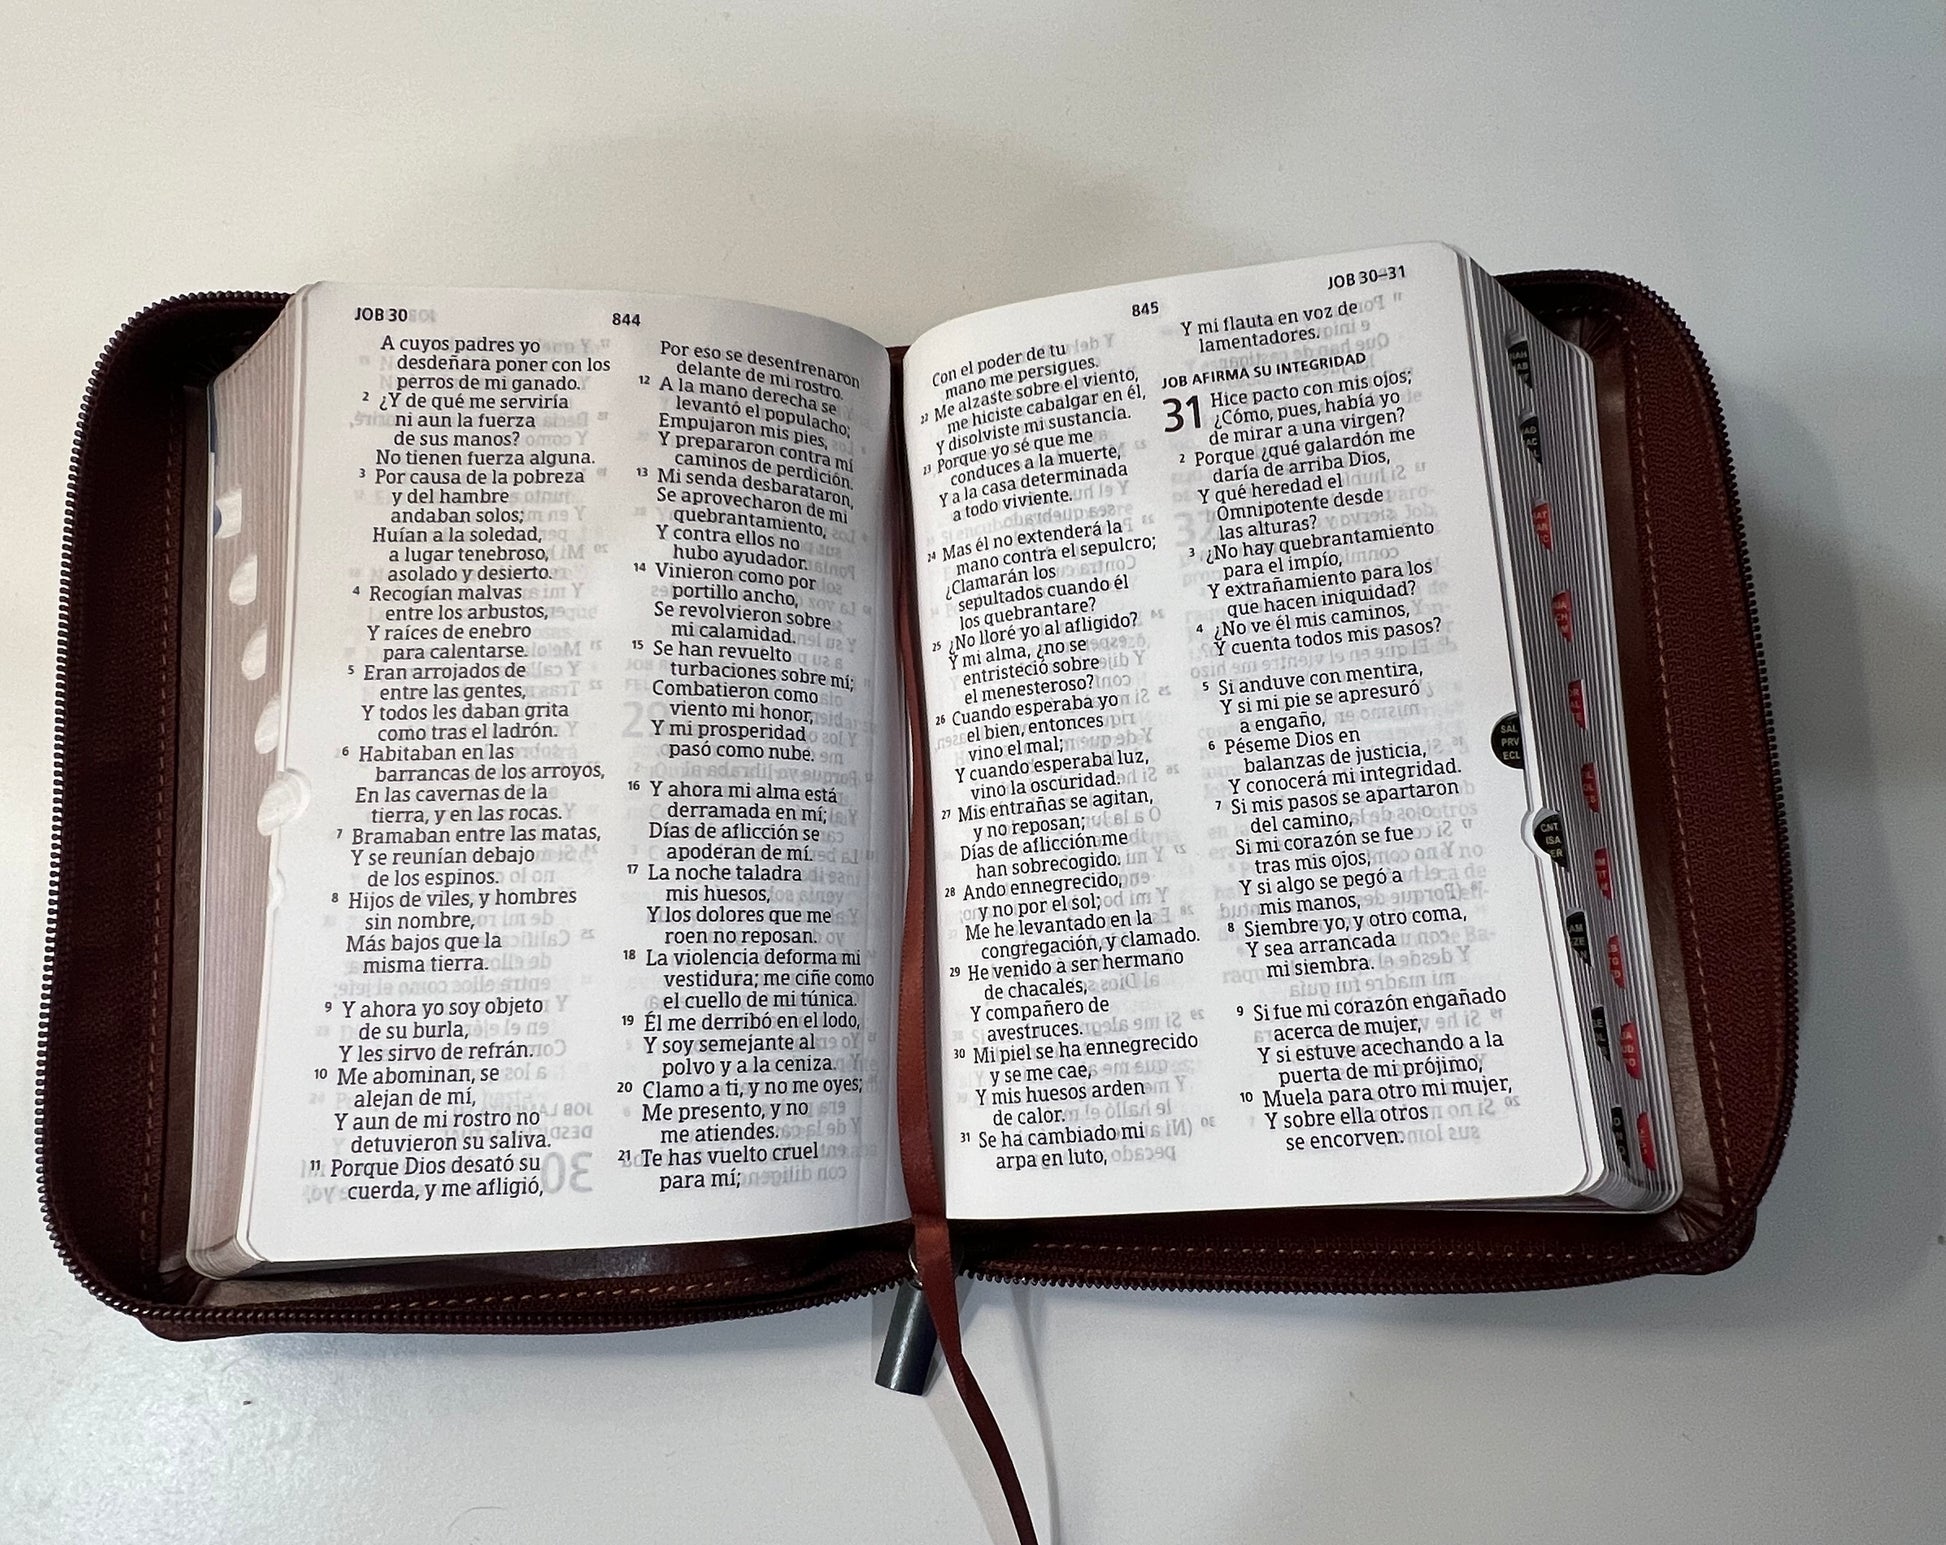 JOB 30
844
A cuyos padres yo
desdeñara poner con los
perros de mi ganado.
2 ¿Y de qué me serviría
ni aun la fuerza
de sus manos?
No tienen fuerza alguna.
3 Por causa de la pobreza
y del hambre
andaban solos;
Huían a la soledad,
a lugar tenebroso,
asolado y desierto.
4 Recogían malvas
entre los arbustos,
Y raíces de enebro
para calentarse.
5 Eran arrojados de
entre las gentes,
Y todos les daban grita
como tras el ladrón.
6 Habitaban en las
barrancas de los arroyos,
En las cavernas de la
tierra, y en las rocas.
7 Bramaban entre las matas,
Y se reunían debajo
de los espinos.
8 Hijos de viles, y hombres
sin nombre,
Más bajos que la
misma tierra.
9 Y ahora yo soy objeto
de su burla,
Y les sirvo de refrán.
10 Me abominan, se
alejan de mí,
Y aun de mi rostro no
detuvieron su saliva.
11 Porque Dios desató su
cuerda, y me afligió,
Por eso se desenfrenaron
delante de mi rostro.
12 A la mano derecha se
levantó el populacho;
Empujaron mis pies,
Y prepararon contra mí
caminos de perdición.
13 Mi senda desbarataron,
Se aprovecharon de mi
quebrantamiento,
Y contra ellos no
hubo ayudador.
14 Vinieron como por
portillo ancho,
Se revolvieron sobre
mi calamidad.
15 Se han revuelto
turbaciones sobre mí;
Combatieron como
viento mi honor,
Y mi prosperidad
pasó como nube.
16 Y ahora mi alma está
derramada en mí;
Días de aflicción se
apoderan de mí.
17 La noche taladra
mis huesos,
Y los dolores que me
roen no reposan.
18 La violencia deforma mi
vestidura; me ciñe como
el cuello de mi túnica.
19 Él me derribó en el lodo,
Y soy semejante al
polvo y a la ceniza.
20 Clamo a ti, y no me oyes;
Me presento, y no
me atiendes.
21 Te has vuelto cruel
para mí;
845
JOB 30–31
Con el poder de tu
mano me persigues.
22 Me alzaste sobre el viento,
me hiciste cabalgar en él,
Y disolviste mi sustancia.
23 Porque yo sé que me
conduces a la muerte,
Y a la casa determinada
a todo viviente.
24 Mas él no extenderá la
mano contra el sepulcro;
¿Clamarán los
sepultados cuando él
los quebrantare?
25 ¿No lloré yo al afligido?
Y mi alma, ¿no se
entristeció sobre
el menesteroso?
26 Cuando esperaba yo
el bien, entonces
vino el mal;
Y cuando esperaba luz,
vino la oscuridad.
27 Mis entrañas se agitan,
y no reposan;
Días de aflicción me
han sobrecogido.
28 Ando ennegrecido,
y no por el sol;
Me he levantado en la
congregación, y clamado.
29 He venido a ser hermano
de chacales,
Y compañero de
avestruces.
30 Mi piel se ha ennegrecido
y se me cae,
Y mis huesos arden
de calor.
31 Se ha cambiado mi
arpa en luto,
Y mi flauta en voz de
lamentadores.
JOB AFIRMA SU INTEGRIDAD
31 Hice pacto con mis ojos;
¿Cómo, pues, había yo
de mirar a una virgen?
2 Porque ¿qué galardón me
daría de arriba Dios,
Y qué heredad el
Omnipotente desde
las alturas?
3 ¿No hay quebrantamiento
para el impío,
Y extrañamiento para los
que hacen iniquidad?
4 ¿No ve él mis caminos,
Y cuenta todos mis pasos?
5 Si anduve con mentira,
Y si mi pie se apresuró
a engaño,
6 Péseme Dios en
balanzas de justicia,
Y conocerá mi integridad.
7 Si mis pasos se apartaron
del camino,
Si mi corazón se fue
tras mis ojos,
Y si algo se pegó a
mis manos,
8 Siembre yo, y otro coma,
Y sea arrancada
mi siembra.
9 Si fue mi corazón engañado
acerca de mujer,
Y si estuve acechando a la
puerta de mi prójimo,
10 Muela para otro mi mujer,
Y sobre ella otros
se encorven.
SAL
PRV
ECL
CNT
ISA